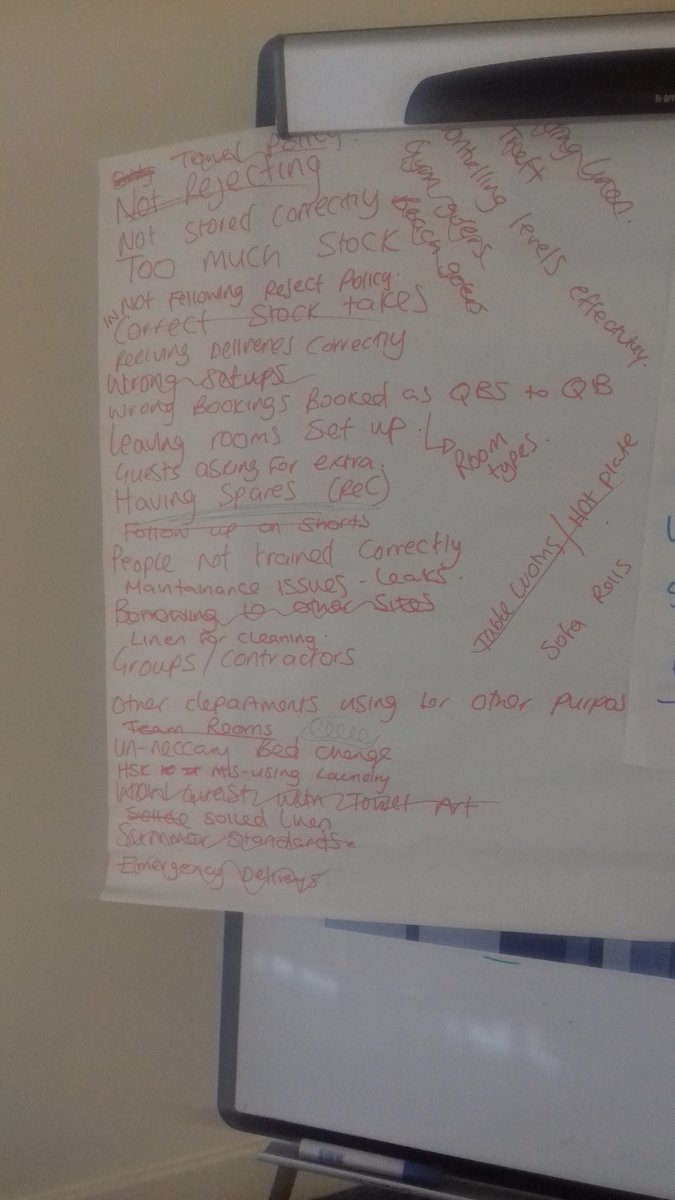 Towel Policy.
Not Rejecting
Not Stored correctly
Too much Stock
Not Following Reject Policy.
INCorrect Stock takes
Deliveries Correctly
Wrong Setups
Wrong Bookings Booked as QBS to QB
Leaving rooms Set up.
Room types.
Guests asking for extra.
Having Spares (Rec)
Follow up on Shorts
People not trained Correctly
Maintainance Issues - Leaks.
Borrowing to other Sites
Linen for cleaning.
Groups/Contractors
Other departments using for other purpos
Team Rooms
un-neccary Bed change
HSK Mis-using Laundry
Wow Guests with Towel Art
Soiled Linen
Summer Standards.
Emergency
Gym goers
Beach goers
ontrolling levels effectivley.
Theft
Linen.
Table Cloths/Hot Plate
Sofa Rolls